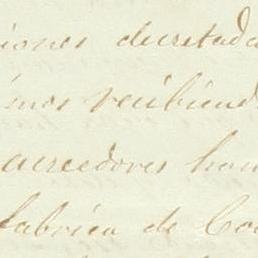 iones decretada
imos recibiend
acreedores hon
fabrica de Co